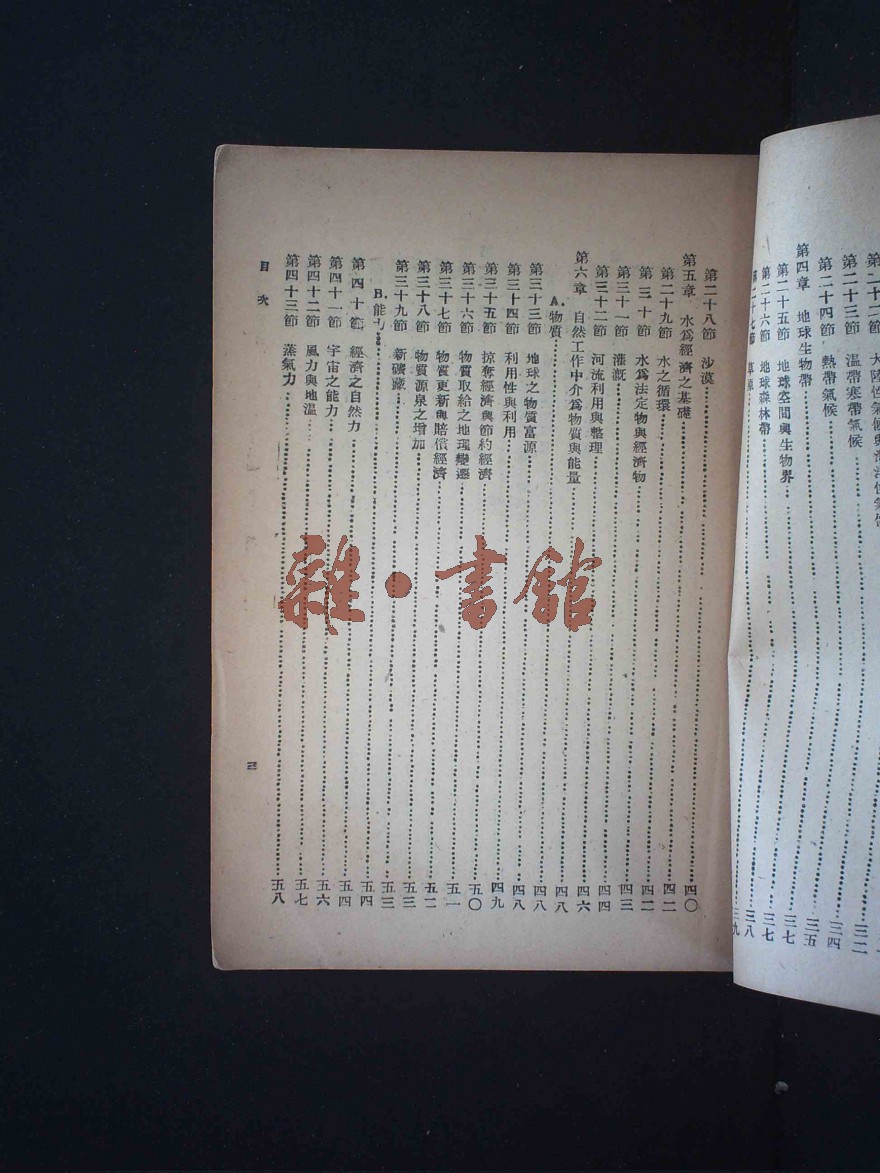 第二十二 大陸性氣候與海洋性氣候……三二
第二十三節 溫帶寒帶氣候……三四
第二十四節 熱帶氣候……三五
第四章 地球生物帶……三七
第二十五節 地球空間與生物界……三七
第二十六節 地球森林帶……三八
第二十七節 草原……三九
第二十八節 沙漠……四〇
第五章 水爲經濟之基礎……四二
第二十九節 水之循環……四二
第三十節 水爲法定物與經濟物……四三
第三十一節 灌漑……四四
第三十二節 河流利用與整理……四六
第六章 自然工作中介爲物質與能量……四八
A.物質……四八
第三十三節 地球之物質富源……四八
第三十四節 利用性與利用……四九
第三十五節 掠奪經濟與節約經濟……五〇
第三十六節 物質取給之地理變遷……五一
第三十七節 物質更新與賠償經濟……五二
第三十八節 物質源泉之增加……五三
第三十九節 新礦藏……五三
B.能力……五四
第四十節 經濟之自然力……五四
第四十一節 宇宙之能力……五六
第四十二節 風力與地溫……五七
第四十三節 蒸氣力……五八
目次
三
雜·書館